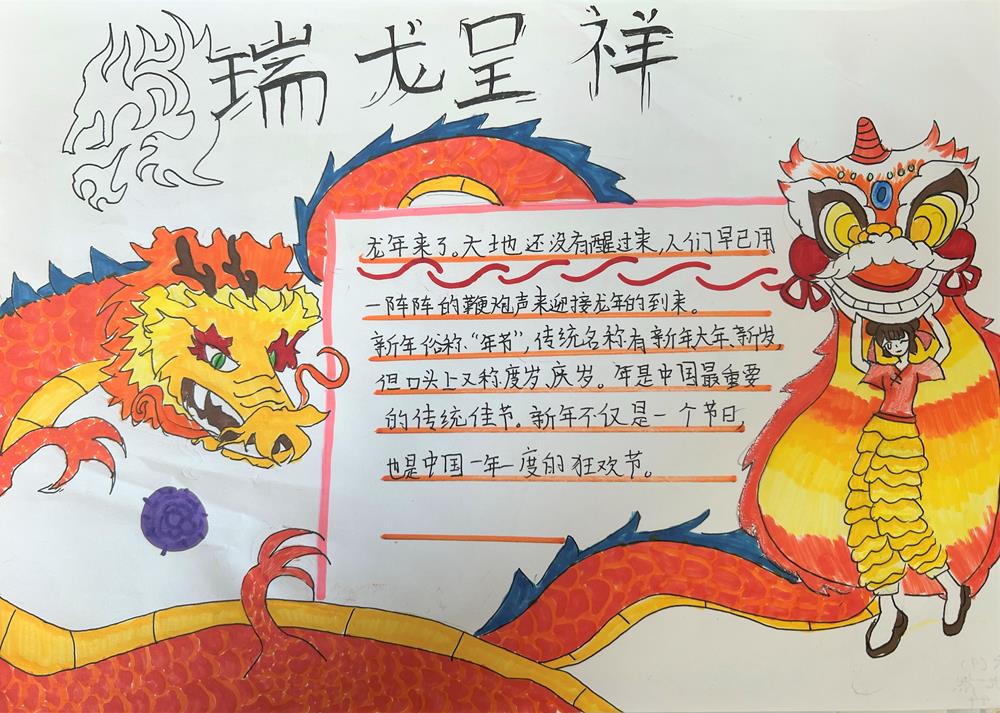 瑞龙呈祥
龙年来了。天地还没有醒过来,人们早已用
一阵阵的鞭炮声来迎接龙年的到来。
新年俗称“年节”,传统名称有新年大年、新岁,
但口头上又称度岁、庆岁。年是中国最重要
的传统佳节。新年不仅是一个节日,
也是中国一年一度的狂欢节。